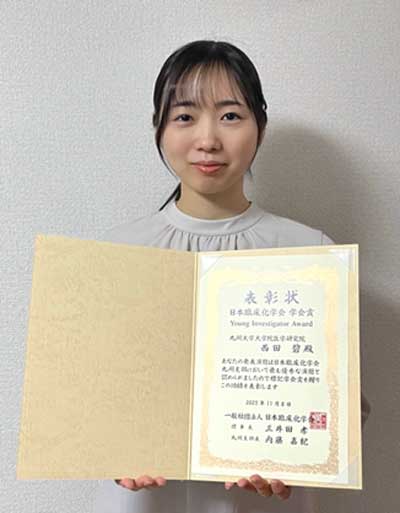 表彰状
日本臨床化学会 学会賞
Young Investigator Award
九州大学大学院医学研究院
西田 碧殿
あなたの発表演題は日本臨床化学会
九州支部において最も優秀な演題と
認められましたので標記学会賞を贈り
この功績を表彰します
2023年11月8日
一般社団法人 日本臨床化学会
理事長 三井田 孝
九州支部長 内藤 嘉紀